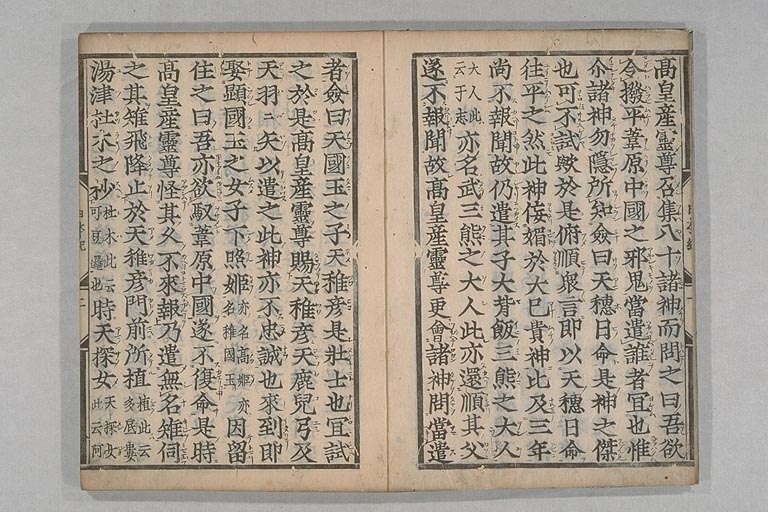 高皇産靈尊召集八十諸神而問之曰吾欲
令撥平葦原中國之邪鬼當遣誰者宜也惟
尒諸神勿隠所知僉曰天穗日命是神之傑
也可不試歟於是俯順衆言即以天穗日命
往平之然此神侫媚於大己貴神比及三年
尚不報聞故仍遣其子大背飯三熊之大人
大人此云于志亦名武三熊之大人此亦還順其父
遂不報聞故高皇産靈尊更會諸神問當遣
者僉曰天國玉之子天稚彦是壯士也宜試
之於是高皇産靈尊賜天稚彦天鹿兒弓及
天羽々矢以遣之此神亦不忠誠也來到即
娶顯國玉之女子下照姫亦名高姫亦名稚國玉因留
住之曰吾亦欲馭葦原中國遂不復命是時
高皇産靈尊怪其久不來報乃遣無名雉伺
之其雉飛降止於天稚彦門前所植植此云多底婁
湯津杜木之杪杜木此云可豆邏也時天探女天探女此云阿